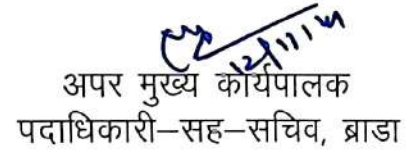 12/11/21
अपर मुख्य कार्यपालक
पदाधिकारी–सह–सचिव, ब्राडा